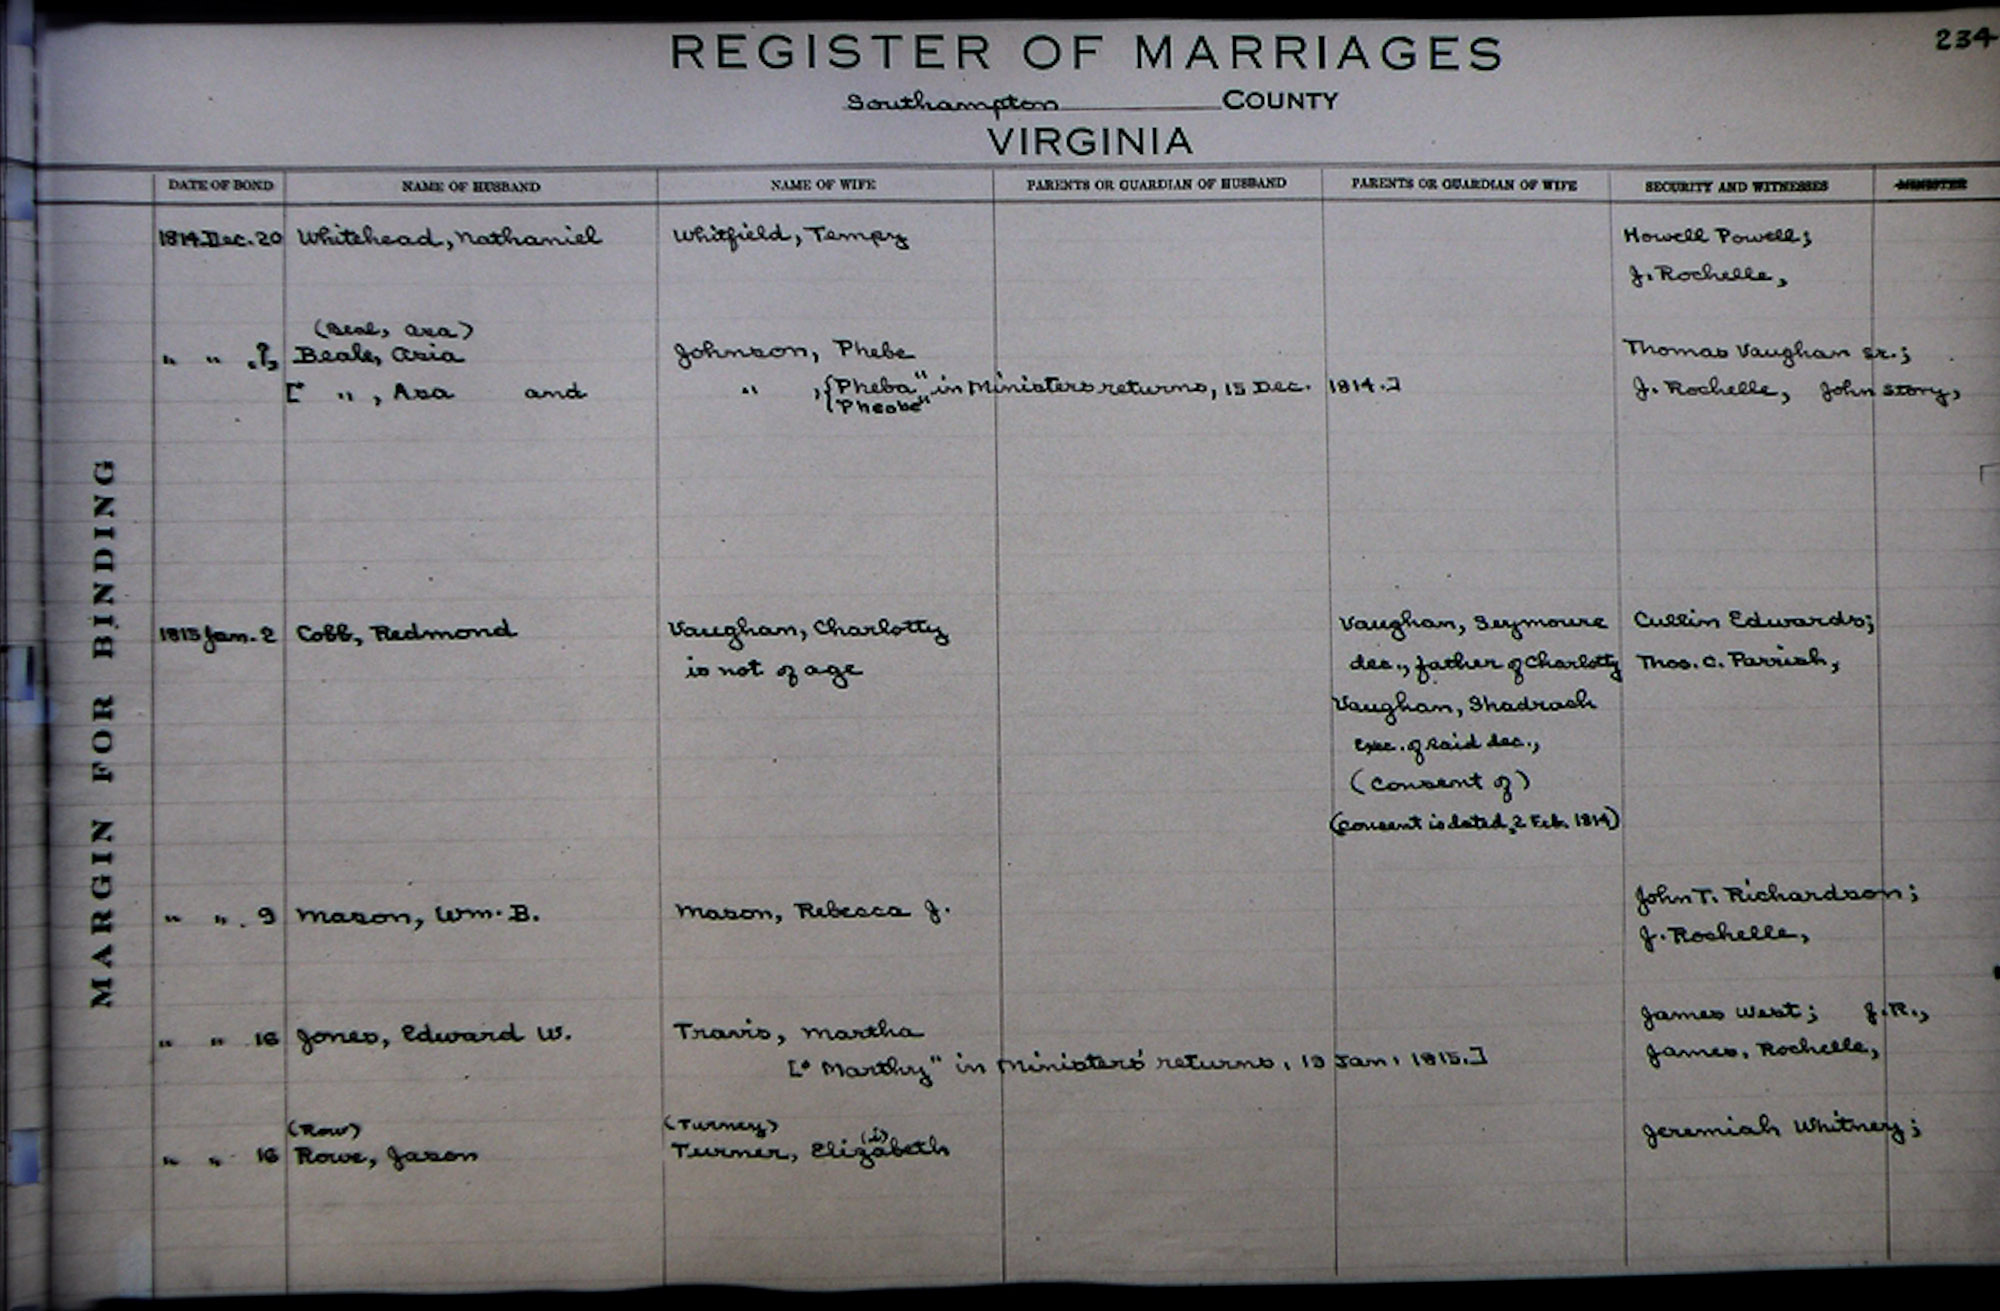 REGISTER OF MARRIAGES
234
Southampton COUNTY
VIRGINIA
DATE OF BOND NAME OF HUSBAND NAME OF WIFE PARENTS OR GUARDIAN OF HUSBAND PARENTS OR GUARDIAN OF WIFE SECURITY AND WITNESSES MINISTER
1814 Dec. 20 Whitehead, Nathaniel Whitfield, Tempy Howell Powell;
J. Rochelle,
(Beal, Asa)
" " ?, Beale, Asia Johnson, Phebe Thomas Vaughan sr.;
[" ", Asa and " ,{Pheba" in Ministers returns, 15 Dec. 1814.] J. Rochelle, John Story,
Pheobe"
1815 Jan. 2 Cobb, Redmond Vaughan, Charlotty Vaughan, Seymoure Cullin Edwards;
is not of age dec., father of Charlotty Thos. C. Parrish,
Vaughan, Shadrach
Exec. of said dec.,
(Consent of)
(consent is dated, 2 Feb. 1814)
" ". 9 Mason, Wm. B. Mason, Rebecca J. John T. Richardson;
J. Rochelle,
" " 16 Jones, Edward W. Travis, Martha James West; J.R.,
["Marthy" in Ministers' returns, 19 Jan. 1815.] James, Rochelle,
(Row) (Turney)
" " 16 Rowe, Jason Turner, Eliz(i)abeth Jeremiah Whitney;
MARGIN FOR BINDING